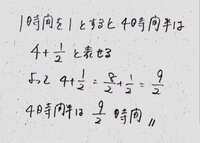 1時間を1とすると4時間半は
4+1/2と表せる
よって 4+1/2=8/2+1/2=9/2
4時間半は9/2時間〃